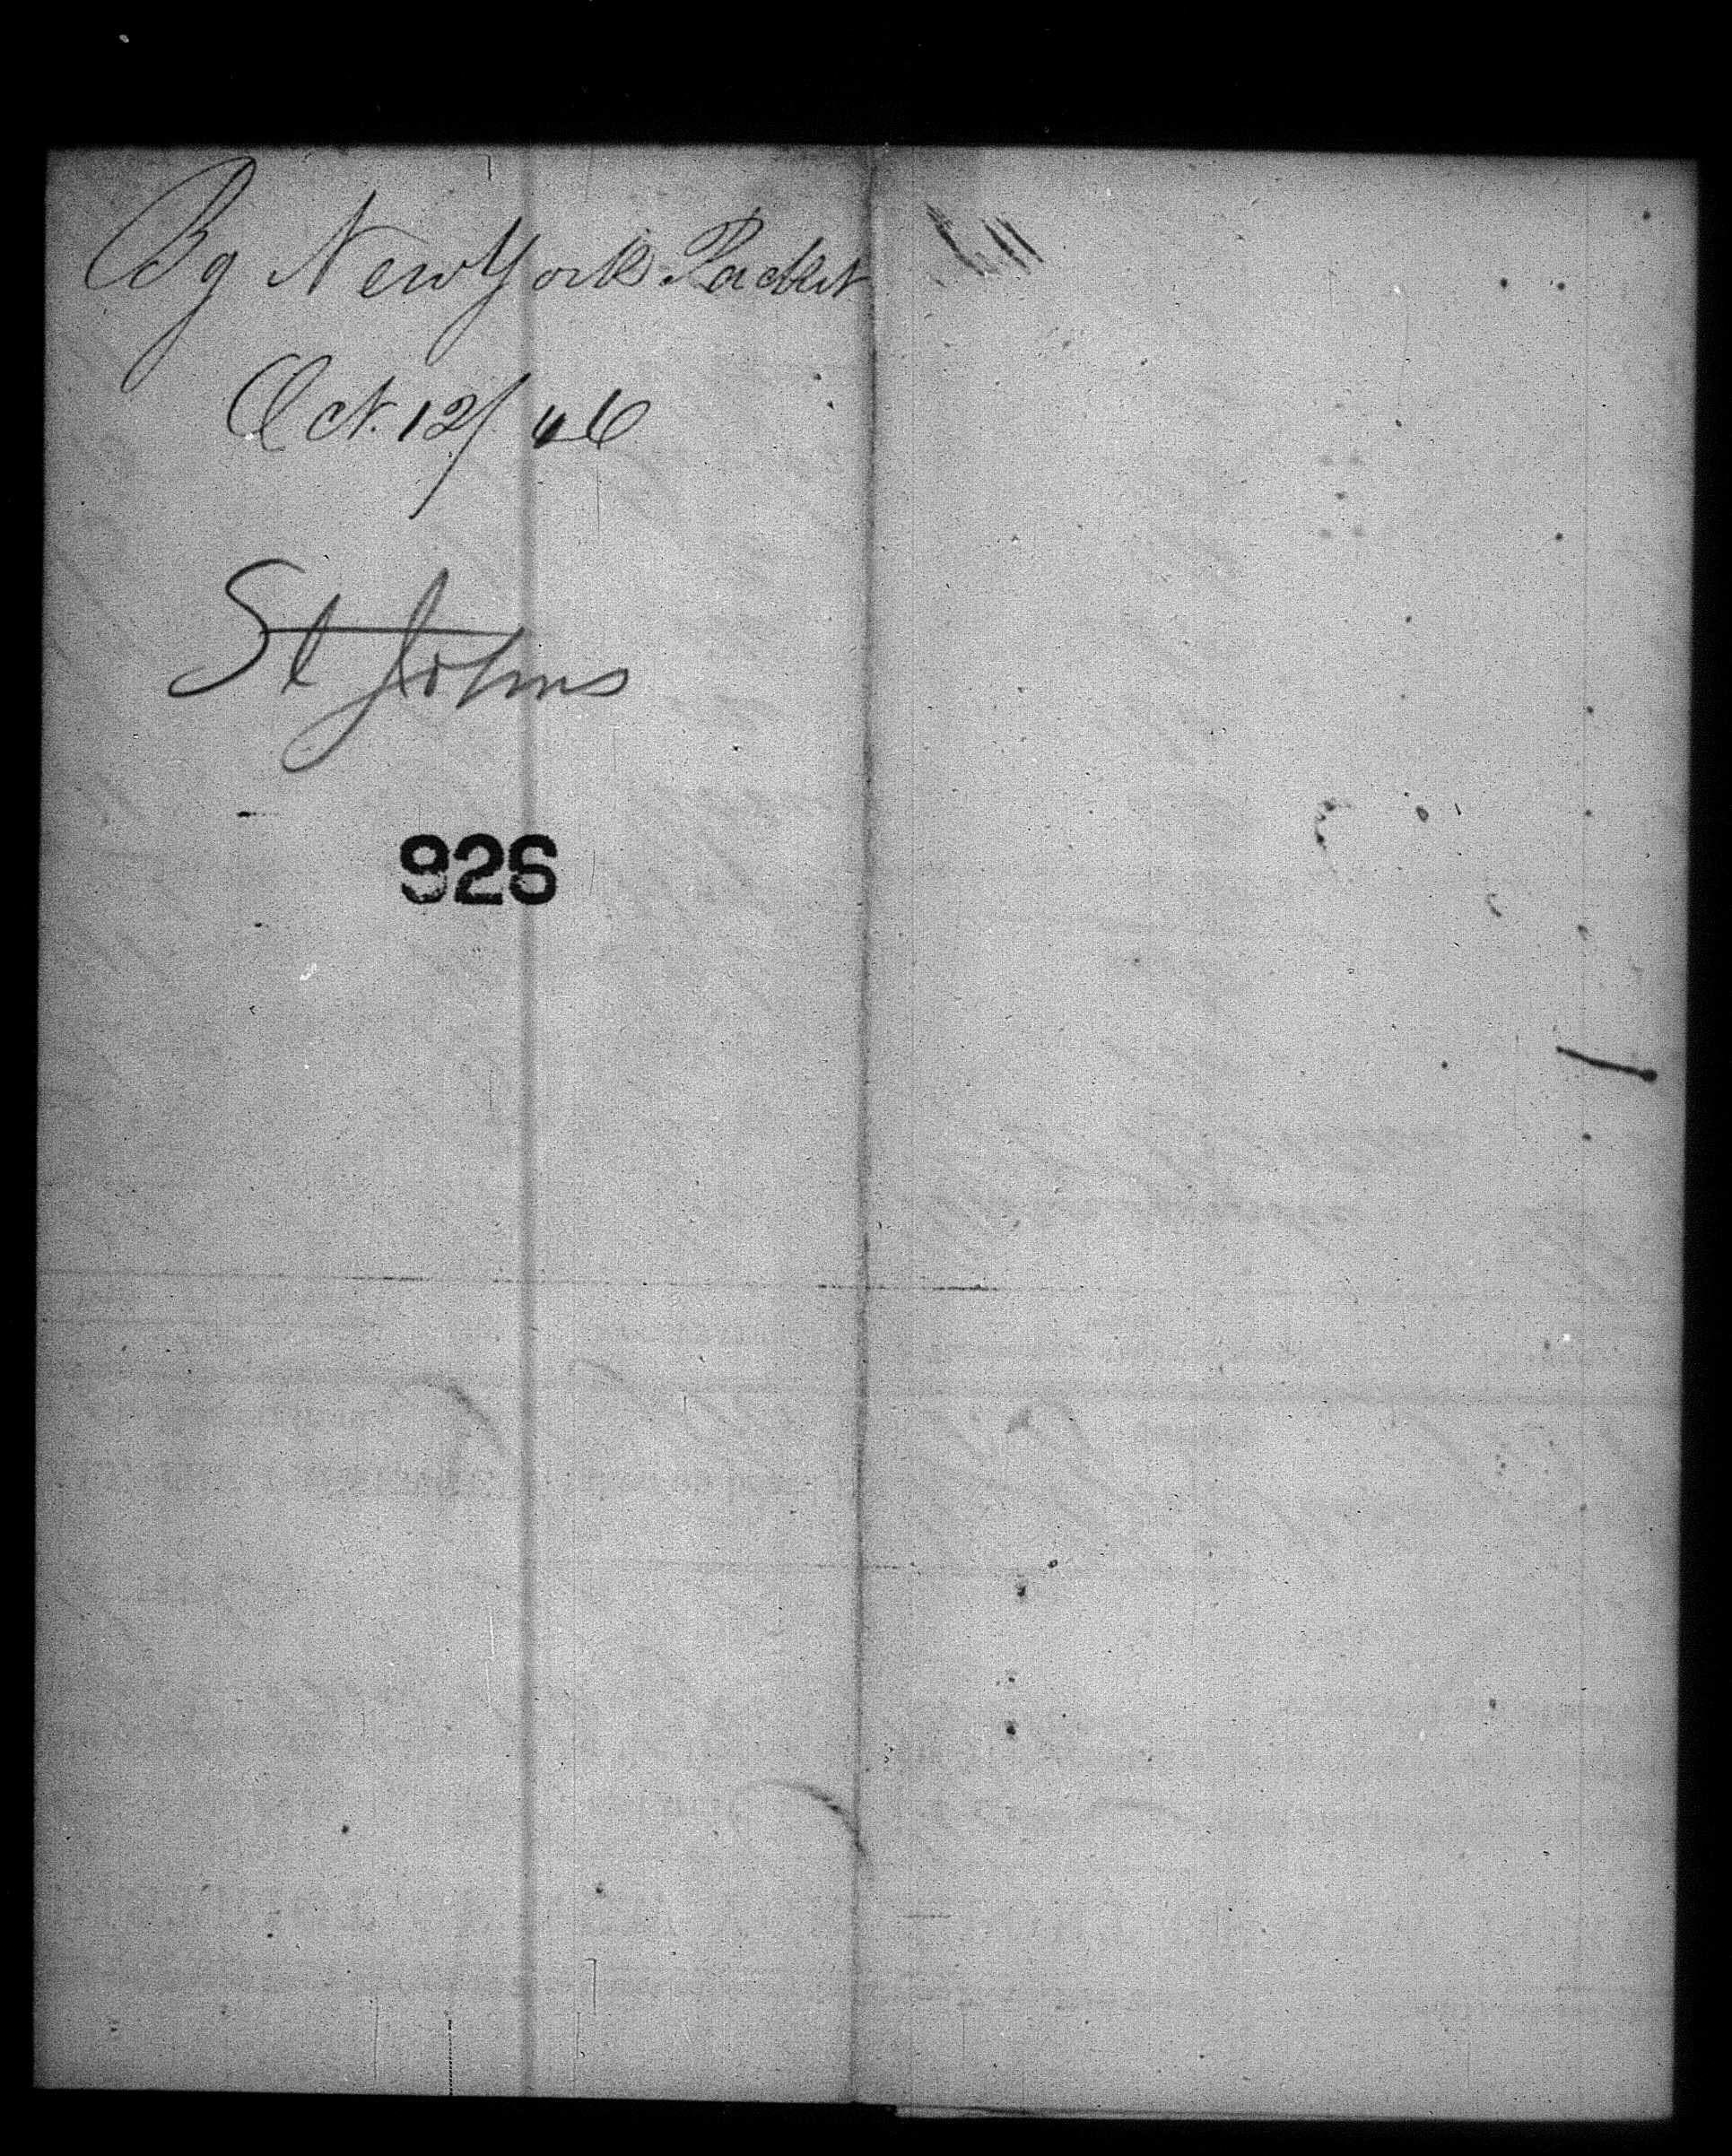 By New York Packet
Oct. 12/46
St Johns
926